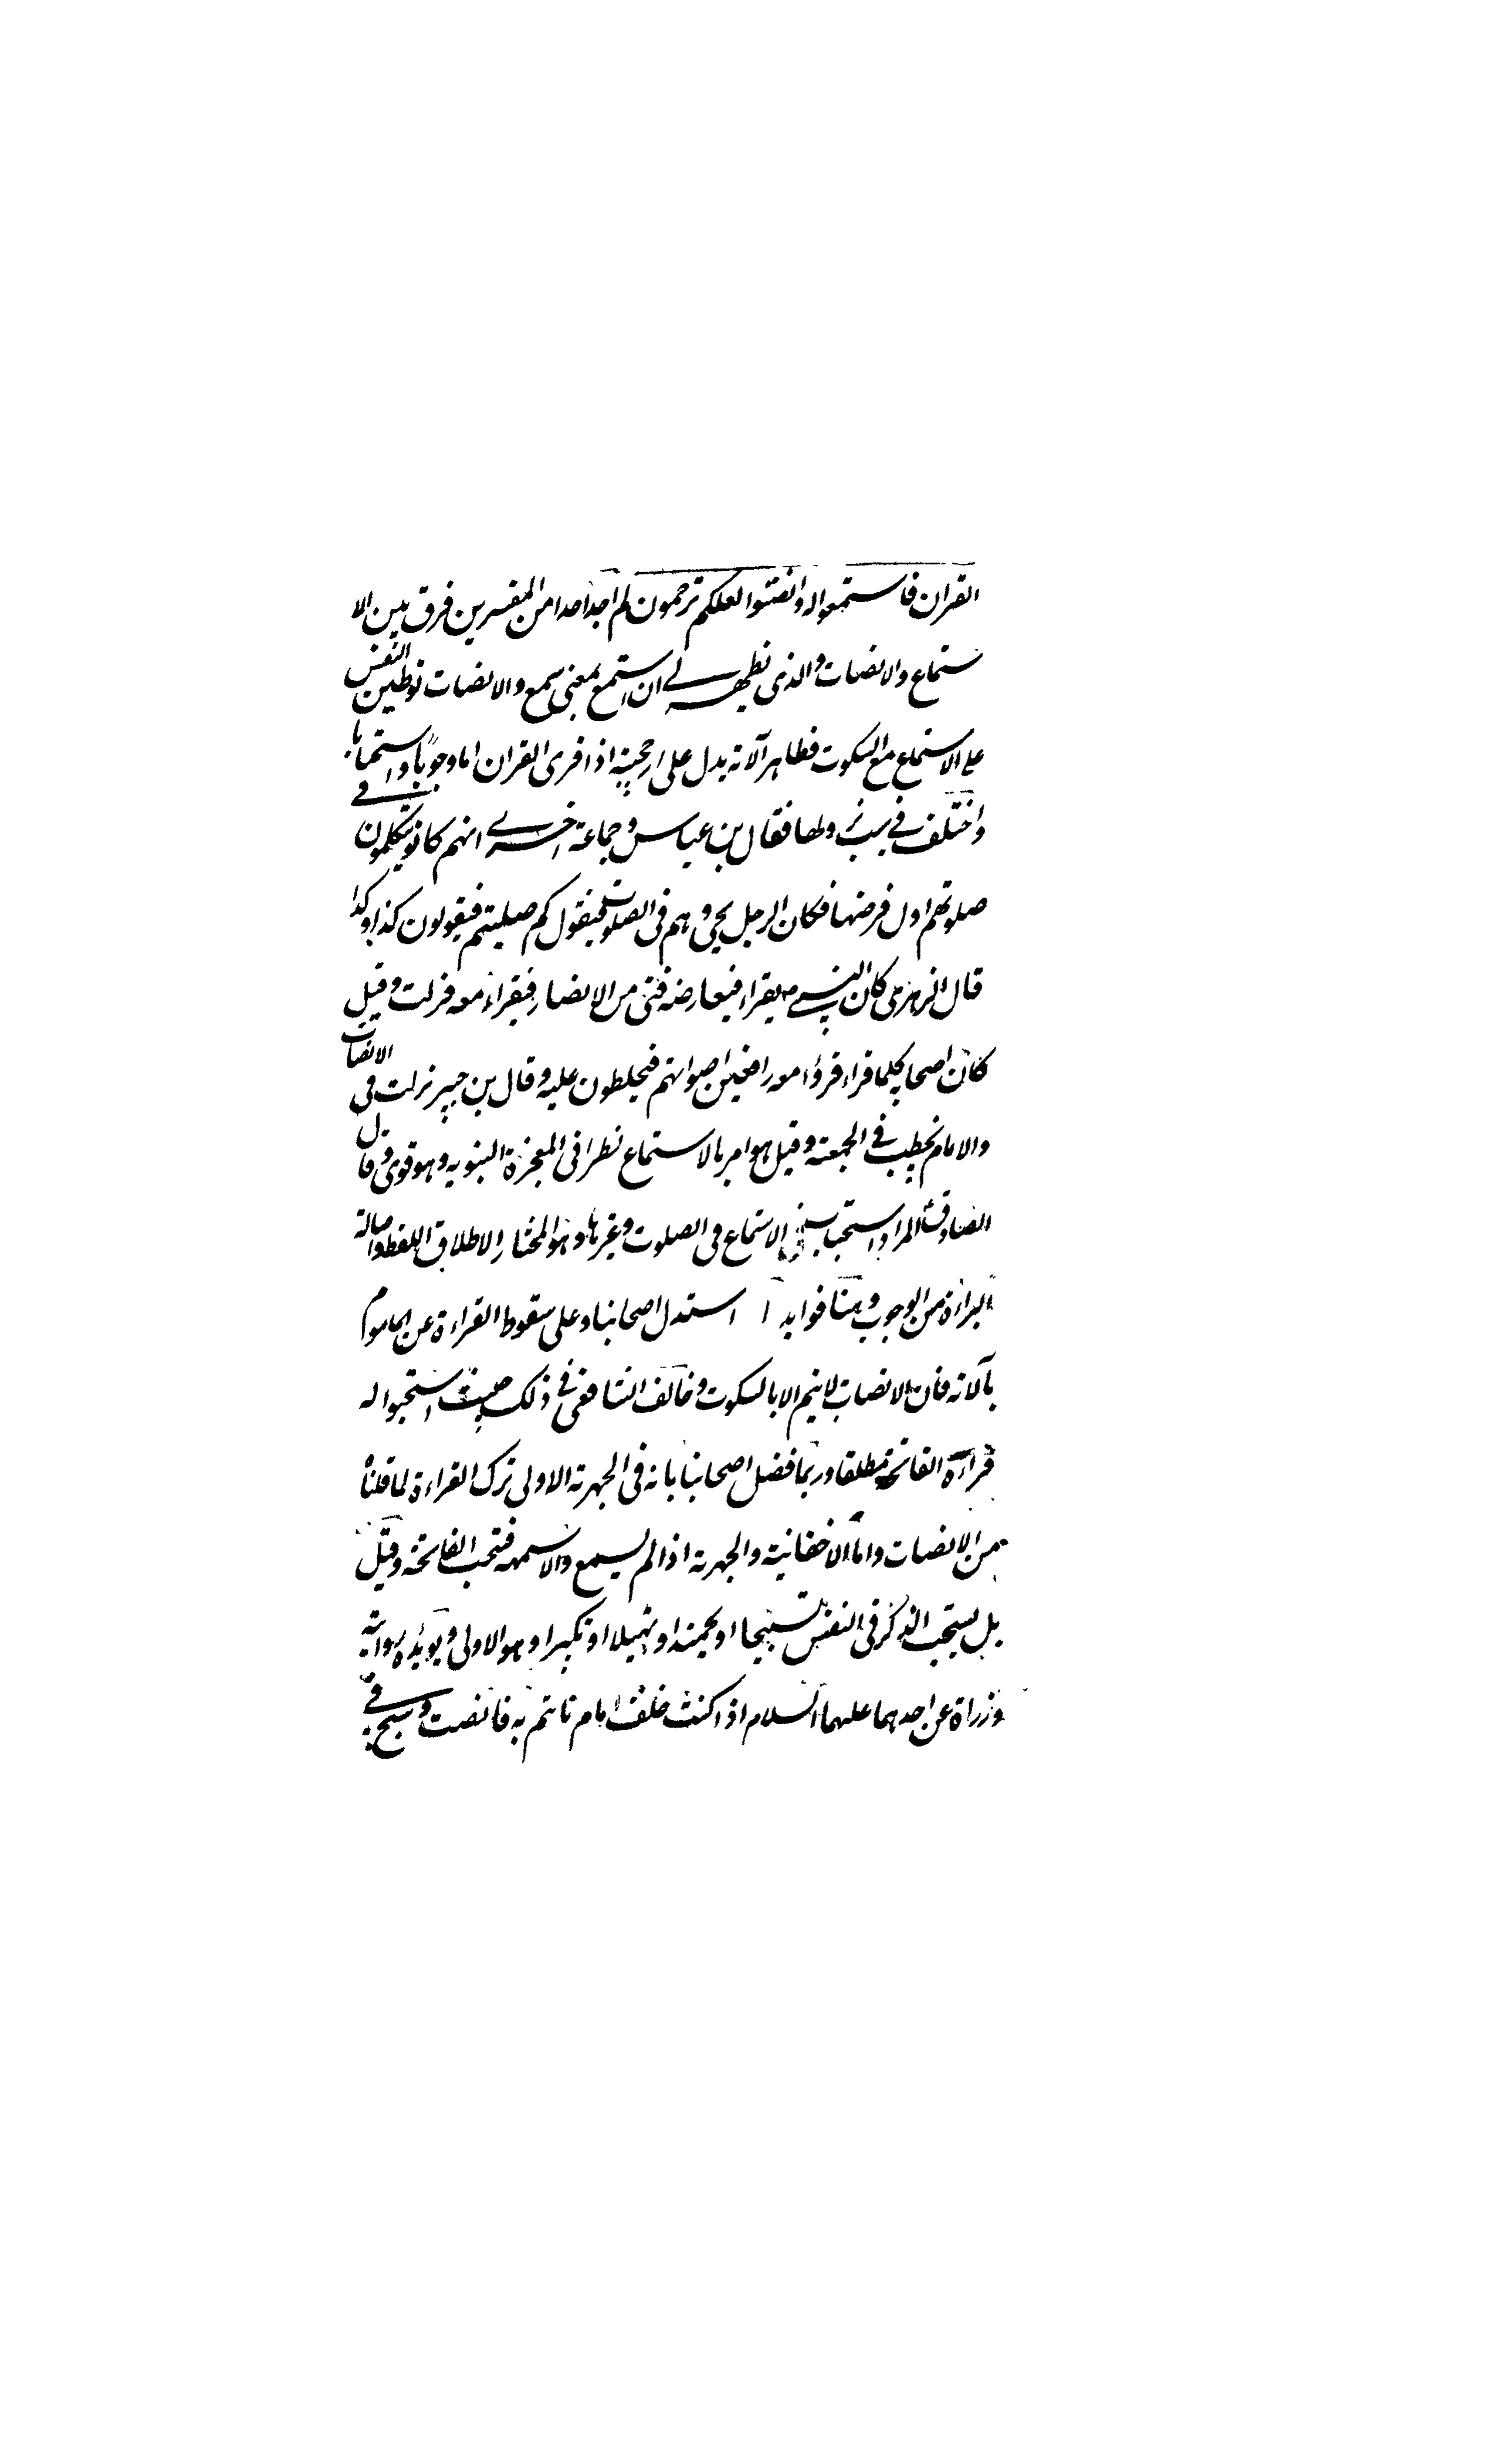 القران فاستمعوا له وانصتوا لعلكم ترحمون لم اجد احدا من المفسرين فرق بين الا
ستماع والانصات والذى يظهر لے ان استمع بمعنى سمع والانصات توطين النفس
على الاستماع مع السكوت فظاهر آلاية يدل على ارجحيته اذا قرى القران اما وجوباً او استحبابا
واختلف فے سبب نزولها فقال بن عباس وجماعة اخرے انهم كانو يتكلمون فے
صلوتهم اول فرضها فكان الرجل يجى وهم فى الصلوت فيقول كم صليتم فيقولون كذا وكذا
قال الزهرى كان النبے ص يقراء فيعارضه فتى من الانصار فيقراء معه فنزلت وقيل
كان اصحابه كلما قراء قرؤا معه رافعين اصواتهم فيخلطون عليه وقال بن جبير نزلت فى الانصات
والامام يخطب فے الجمعة وقيل هو امر بالاستماع نظرا فى المعجزة النبويه وهو قوى وقال
الصادق المراد استحباب الاستماع فى الصلوت وغيرها وهو المختار لاطلاق اللفظ واصالة
البراءة من الوجوب وهنا فوايد ا استدل اصحابنا على سقوط القراءة عن الماموم
بآلاية فان الانصات لا يتم الا بالسكوت وخالف الشافعى فے ذلك حيث استحبوا له
قراءة الفاتحة مطلقا وربما فصل اصحابنا بانه فى الجهرية الاولى ترك القراءة لما قلنا
من الانصات واما الاخفاتية والجهرية اذا لم يسمع ولا همهمة فتستحب الفاتحة وقيل
بل يستحب الذكر فى النفس تسبيحا او تحميدا او تهليلا او تكبيرا وهو الاولى ويويده رواية
زرارة عن احدهما عليهما السلام اذا كنت خلف امام تاتم به فانصت وسبح فے